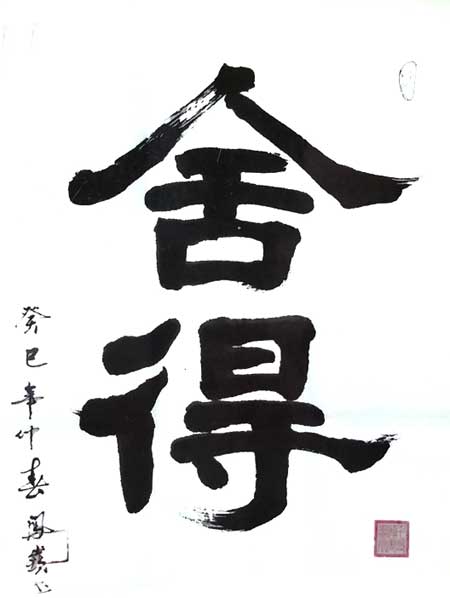 舍得
癸巳年仲春